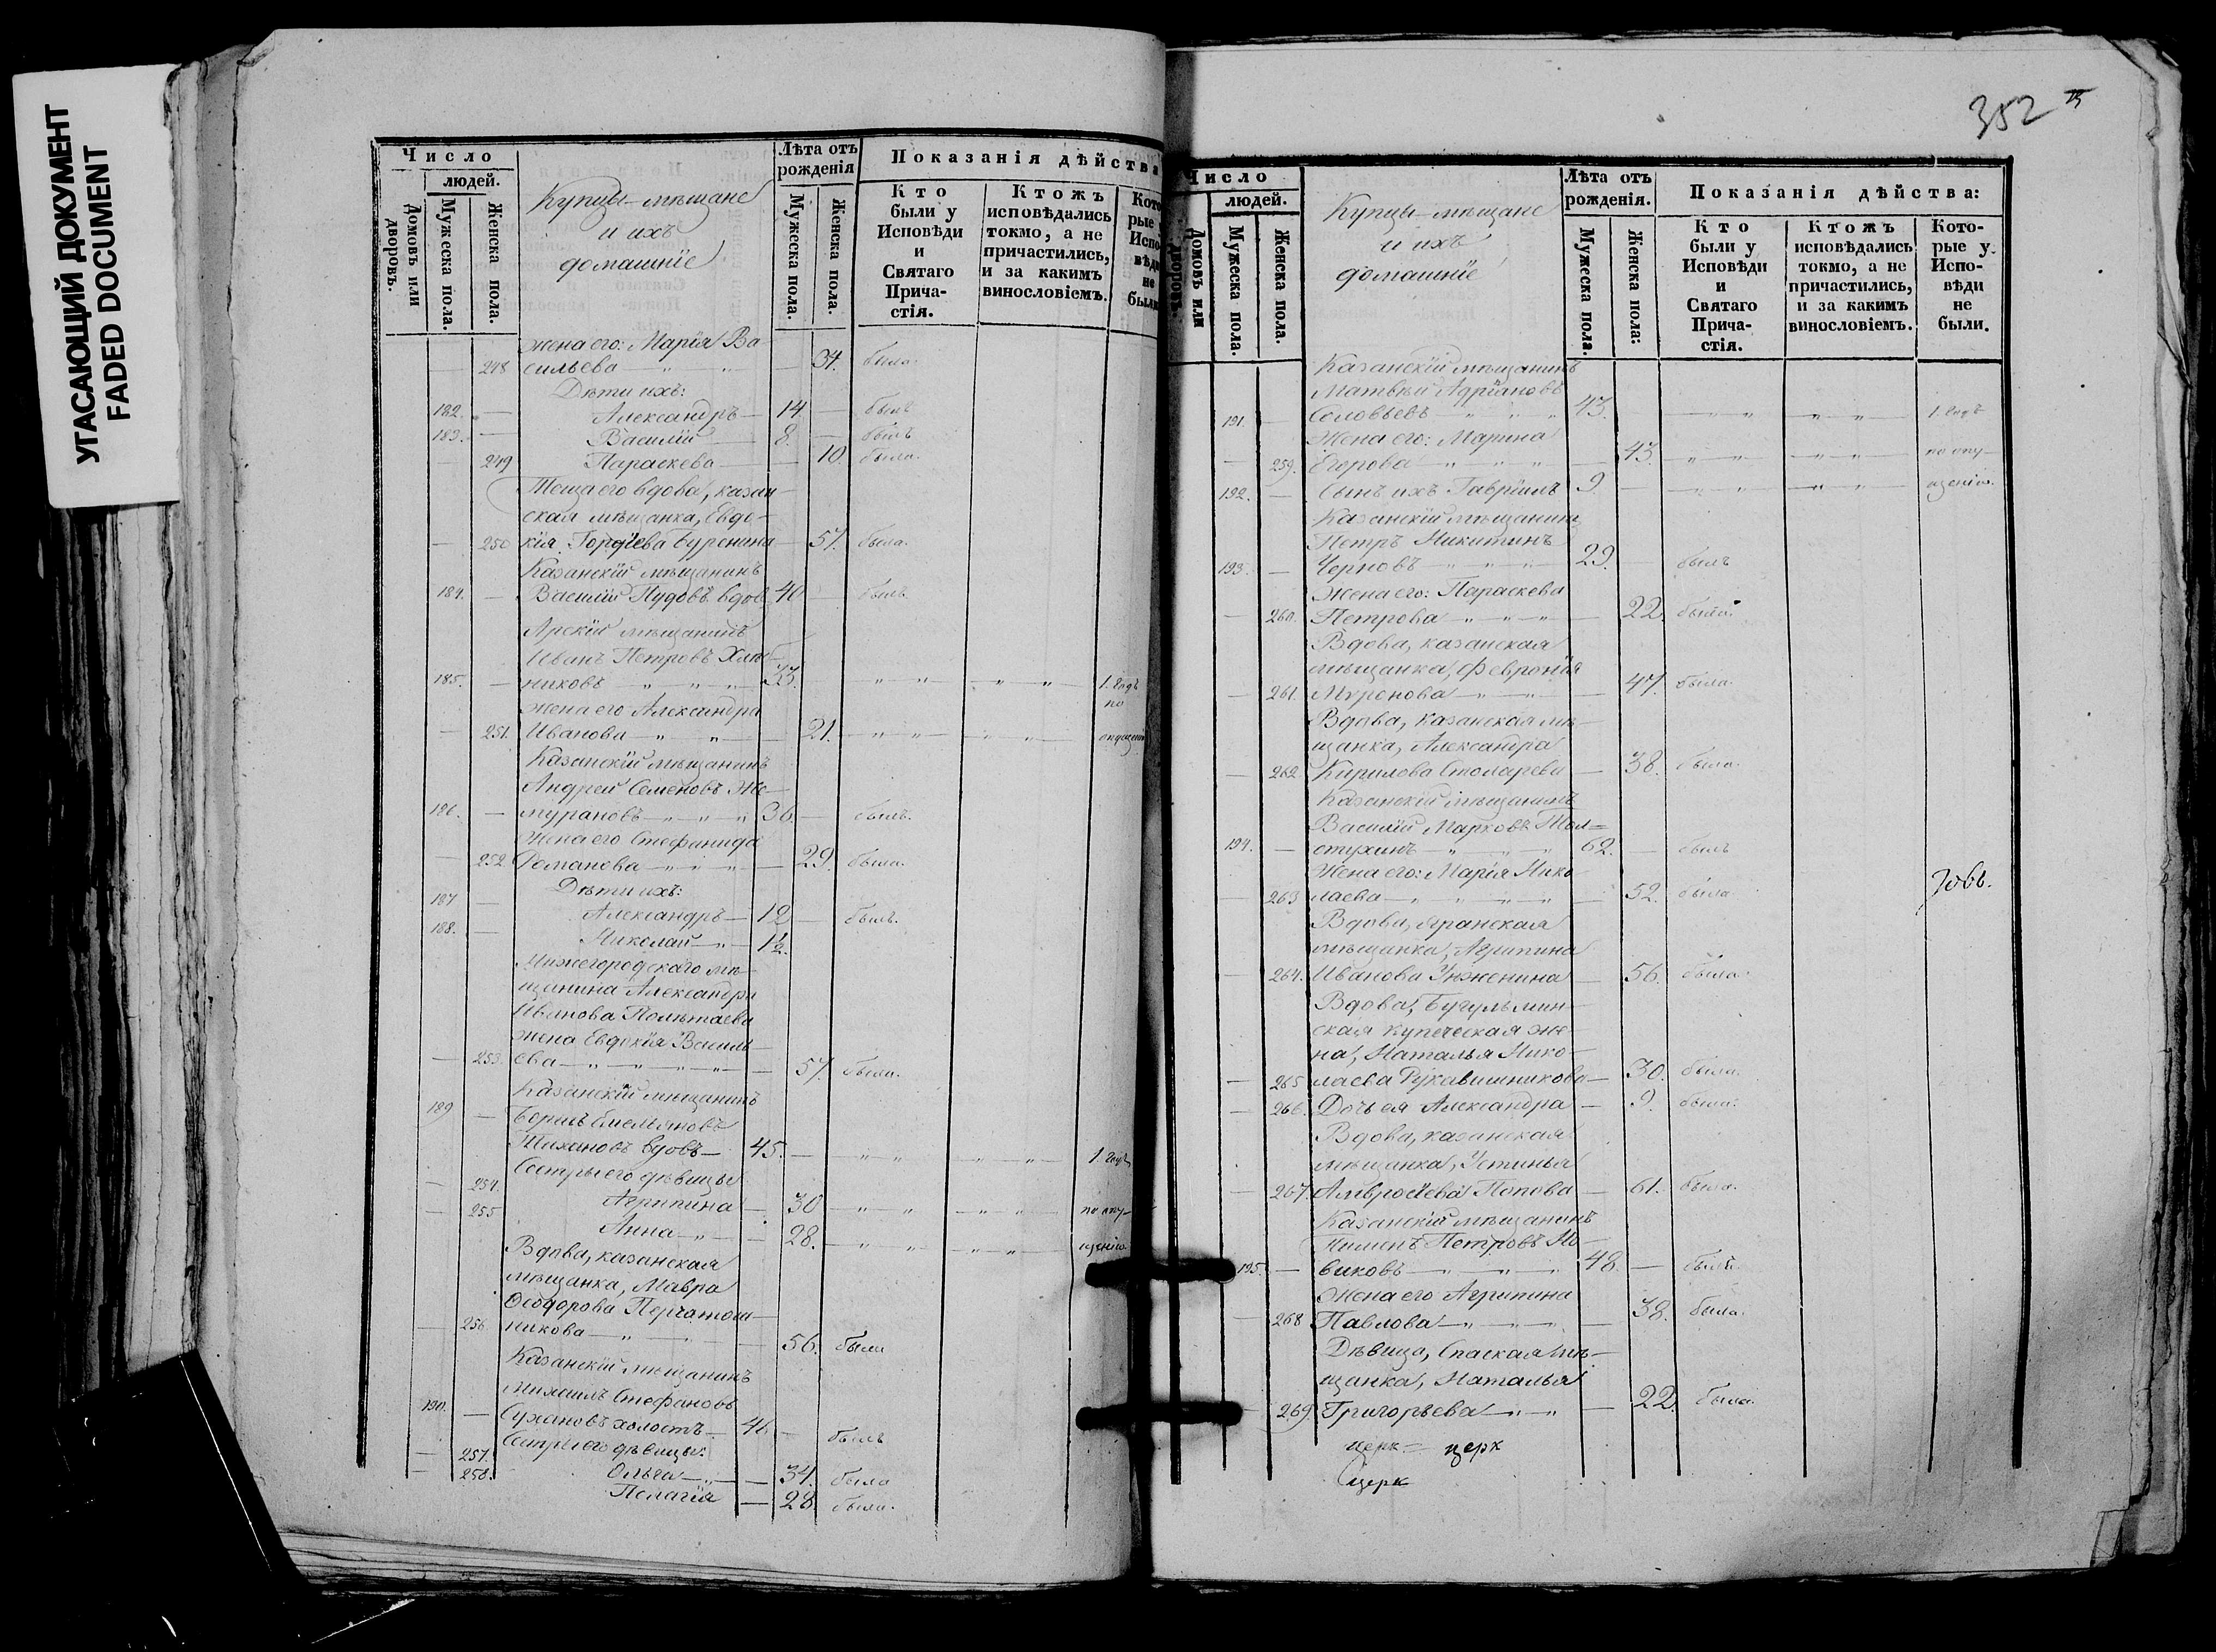 УГАСАЮЩИЙ ДОКУМЕНТ
FADED DOCUMENT
Число
людей.
Домовъ или дворовъ.
Мужеска пола.
Женска пола.
Купцы мѣщане
и ихъ
домашніе
Лѣта отъ
рожденія
Мужеска пола.
Женска пола.
Показанія дѣйства
Кто
были у
Исповѣди
и
Святаго
Прича-
стія.
Ктожъ
исповѣдались
токмо, а не
причастились,
и за какимъ
винословіемъ.
Кото
рые
Испо
вѣди
не
были
жена его: Марія Ва
248 сильева — „ — „ — 34. была.
Дѣти ихъ:
182. — Александръ — 14. — былъ
183. — Василій — 8. — былъ
— 249 Параскева — 10. была.
Теща его вдова, казан-
ская мѣщанка, Евдо-
— 250 кія Гордѣева Буренина — 57. была.
Казанскій мѣщанинъ
184. — Василій Пудовъ вдов 40 — былъ
Арскій мѣщанинъ
Иванъ Петровъ Хлѣб-
185. — никовъ — „ — „ — 33. — „ „ — „ „ — 1. годъ
жена его Александра по
— 251. Иванова — „ — „ — 21. — „ „ — „ „ — опущен
Казанскій мѣщанинъ
Андрей Семеновъ Же-
186. — мурановъ — „ — „ — „ 36. — былъ.
жена его Стефанида
— 252 Романова — „ — „ — 29. была.
Дѣти ихъ:
187 — Александръ — 12 — былъ.
188. — Николай — „ — 1½.
Нижегородскаго мѣ-
щанина Александра
Иванова Полѣтаева
жена Евдокія Василь-
— 253. ева — „ — „ — „ — 57. была.
Казанскій мѣщанинъ
189 — Борисъ Емельяновъ
Тихановъ вдовъ — 45. — „ „ — „ „ — 1. годъ
Сестры его дѣвицы
— 254. Агрипина — 30 — „ „ — „ „ — по опу-
— 255 Анна — „ — 28. — „ „ — „ „ — щенію
Вдова, казанская
мѣщанка, Мавра
Ѳеодорова Перчатош-
— 256. никова — „ — 56. была
Казанскій мѣщанинъ
Михаилъ Стефановъ
190. — Сухановъ холостъ — 46 — былъ
Сестры его дѣвицы:
— 257. Ольга — „ — 34. была
— 258. Пелагія — 28. была.
352
Число
людей.
Домовъ или дворовъ.
Мужеска пола.
Женска пола.
Купцы мѣщане
и ихъ
домашніе
Лѣта отъ
рожденія.
Мужеска пола.
Женска пола:
Показанія дѣйства:
Кто
были у
Исповѣди
и
Святаго
Прича-
стія.
Ктожъ
исповѣдались
токмо, а не
причастились,
и за какимъ
винословіемъ.
Кото-
рые у
Испо-
вѣди
не
были.
Казанскій мѣщанинъ
Матвѣй Адріановъ
191. — Соловьевъ „ „ „ 43. — „ „ — „ „ — 1. годъ
Жена его: Марина
— 259. Егорова — „ — „ — „ — 43. — „ „ — „ „ — по опу-
192. — Сынъ ихъ Гавріилъ 9. — „ „ — „ „ — щенію.
Казанскій мѣщанинъ
Петръ Никитинъ
193. — Черновъ — „ — „ — „ 29. — былъ
Жена его: Параскева
— 260. Петрова — „ — „ — „ — 22. была.
Вдова, казанская
мѣщанка, Февронія
— 261. Муронова — „ — „ — 47. была.
Вдова, казанская мѣ-
щанка, Александра
— 262. Кирилова Столарева — 38. была.
Казанскій мѣщанинъ
Василій Марковъ Тол=
194. — стухинъ — „ — „ — „ 62. — былъ
Жена его: Марія Нико
— 263 лаева — „ — „ — „ — 52. была
Вдова, яранская
мѣщанка, Агрипина
— 264. Иванова Унженина — 56. была.
Вдова, Бугульмин-
ская купеческая же-
на, Наталья Нико-
— 265 лаева Рукавишникова — 30. была.
— 266. Дочь ея Александра — 9. была.
Вдова, казанская
мѣщанка, Устинья
— 267. Амвросіева Попова — 61. была.
Казанскій мѣщанинъ
Пименъ Петровъ Но-
195. — виковъ — „ — „ — „ 48. — былъ.
Жена его Агрипина
— 268 Павлова — „ — „ — „ — 38. была.
Дѣвица, Спаская мѣ-
щанка, Наталья
— 269 Григорьева — „ — „ — 22. была.
церк = церк
церк